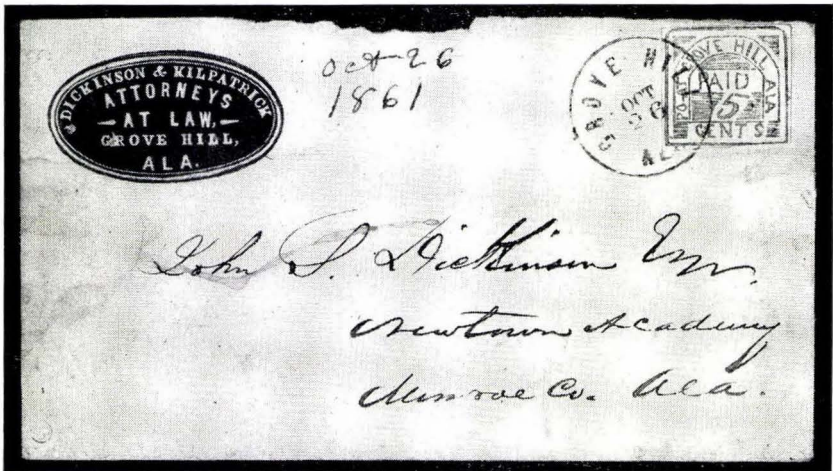 DICKINSON & KILPATRICK
ATTORNEYS
AT LAW,
GROVE HILL,
ALA.
Oct 26
1861
GROVE HILL
OCT
26
ALA
P.O. GROVE HILL ALA
PAID
5
CENTS
John S. Dickinson Esqr.
Newtown Academy
Munroe Co. Ala.